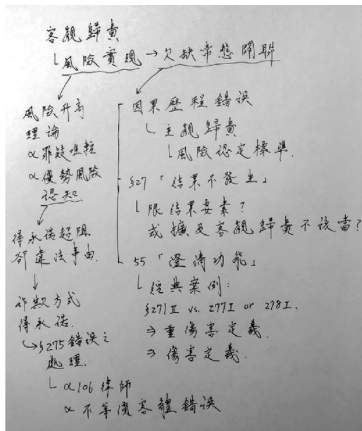 客觀歸責
└風險實現→欠缺常態關聯
風險升高
理論
∝罪疑唯輕
∝優勢風險
認知
得承諾超阻
卻違法事由
詐欺方式
得承諾.
↳§275錯誤之
處理.
└∝106律師
∝不等價客體錯誤
因果歷程錯誤
└主觀歸責
└風險認定標準.
§27「結果不發生」
└限結果要素?
或擴及客觀歸責不該當?
55「澄清功能」
└經典案例:
§271Ⅱ vs. 277Ⅰ or 278Ⅰ.
⇒重傷害定義.
⇒傷害定義.